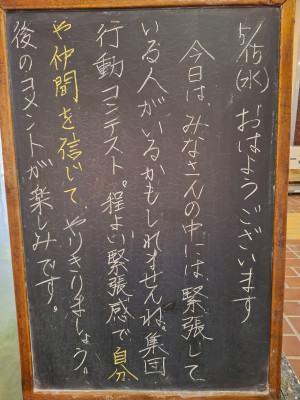 5/15(水) おはようございます
今日は、みなさんの中には、緊張して
いる人がいるかもしれませんね。集団
行動コンテスト。程よい緊張感で、自分
や仲間を信じて、やりきりましょう。
後のコメントが楽しみです。